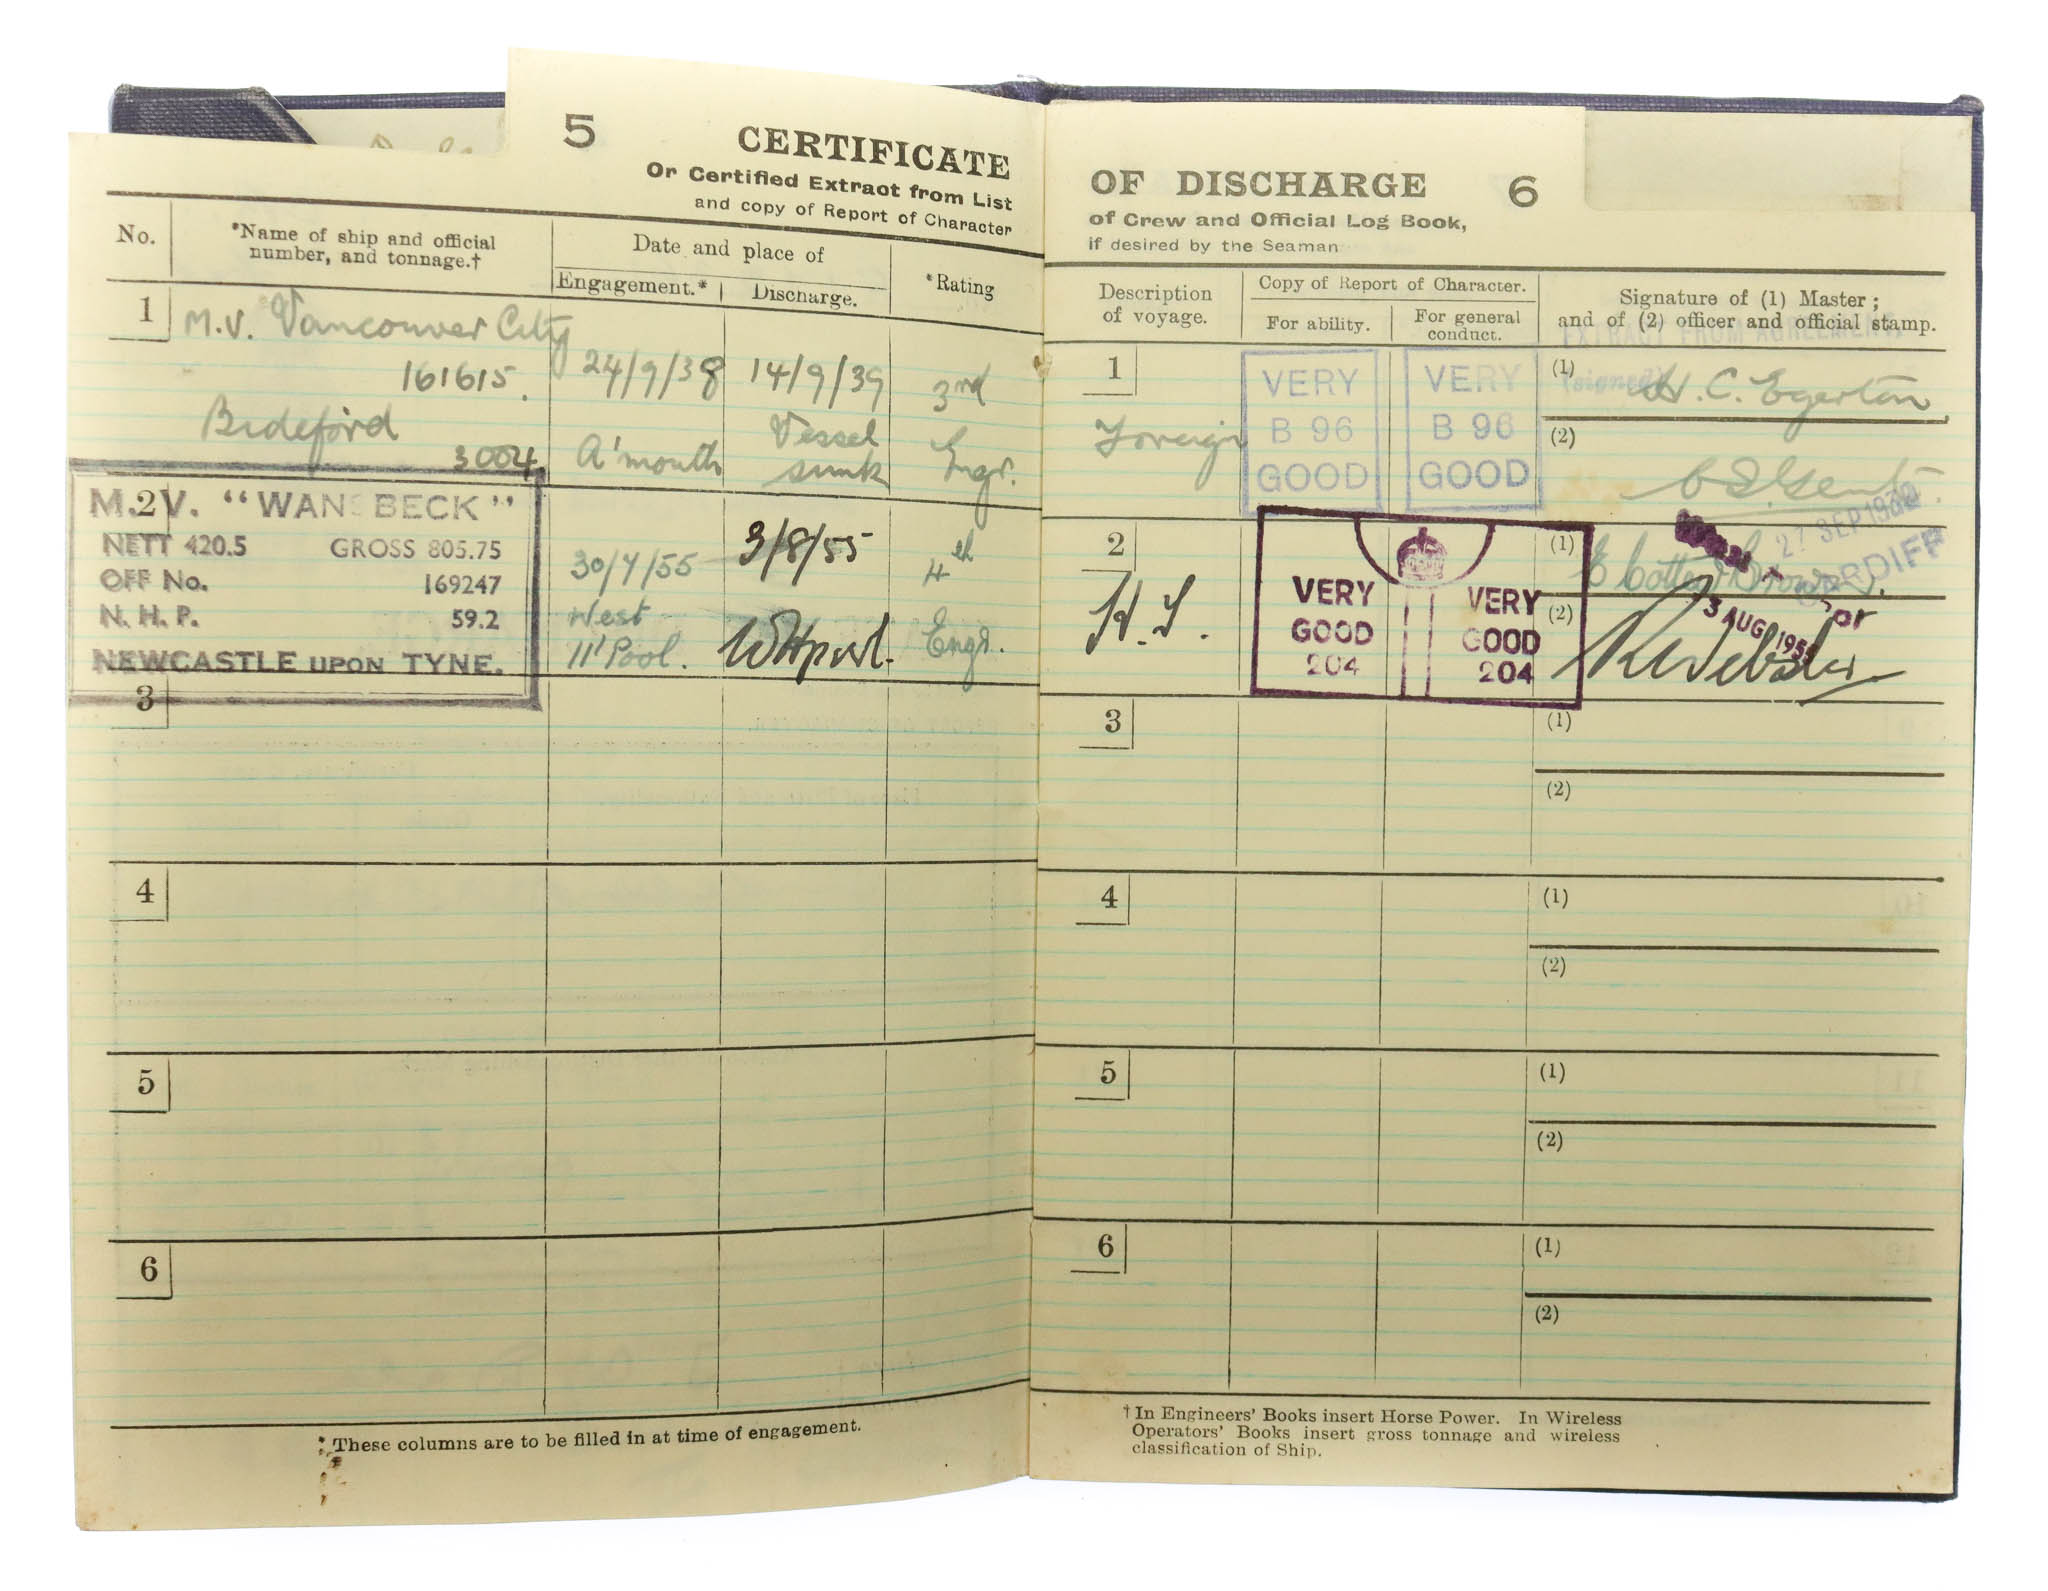 5 CERTIFICATE
Or Certified Extract from List
and copy of Report of Character
No.
*Name of ship and official
number, and tonnage.†
Date and place of
Engagement.*
Discharge.
*Rating
1
M.V. Vancouver City
161615.
Bideford
3004
24/9/38
A'mouth
14/9/39
Vessel
sunk
3rd
Engr.
2
M.V. "WANSBECK"
NETT 420.5 GROSS 805.75
OFF No. 169247
N. H. P. 59.2
NEWCASTLE UPON TYNE.
30/7/55
West
H'Pool.
3/8/55
W Hpool.
4th
Engr.
3
4
5
6
* These columns are to be filled in at time of engagement.
OF DISCHARGE 6
of Crew and Official Log Book,
if desired by the Seaman
Description
of voyage.
Copy of Report of Character.
For ability.
For general
conduct.
Signature of (1) Master;
and of (2) officer and official stamp.
EXTRACT FROM AGREEMENT
1
Foreign
VERY
B 96
GOOD
VERY
B 96
GOOD
(1)
(signed) H. C. Egerton
(2)
27 SEP 1939
CARDIFF
2
H.T.
VERY
GOOD
204
VERY
GOOD
204
(1)
(2)
3 AUG 1955
R Webster
3
(1)
(2)
4
(1)
(2)
5
(1)
(2)
6
(1)
(2)
† In Engineers' Books insert Horse Power. In Wireless
Operators' Books insert gross tonnage and wireless
classification of Ship.